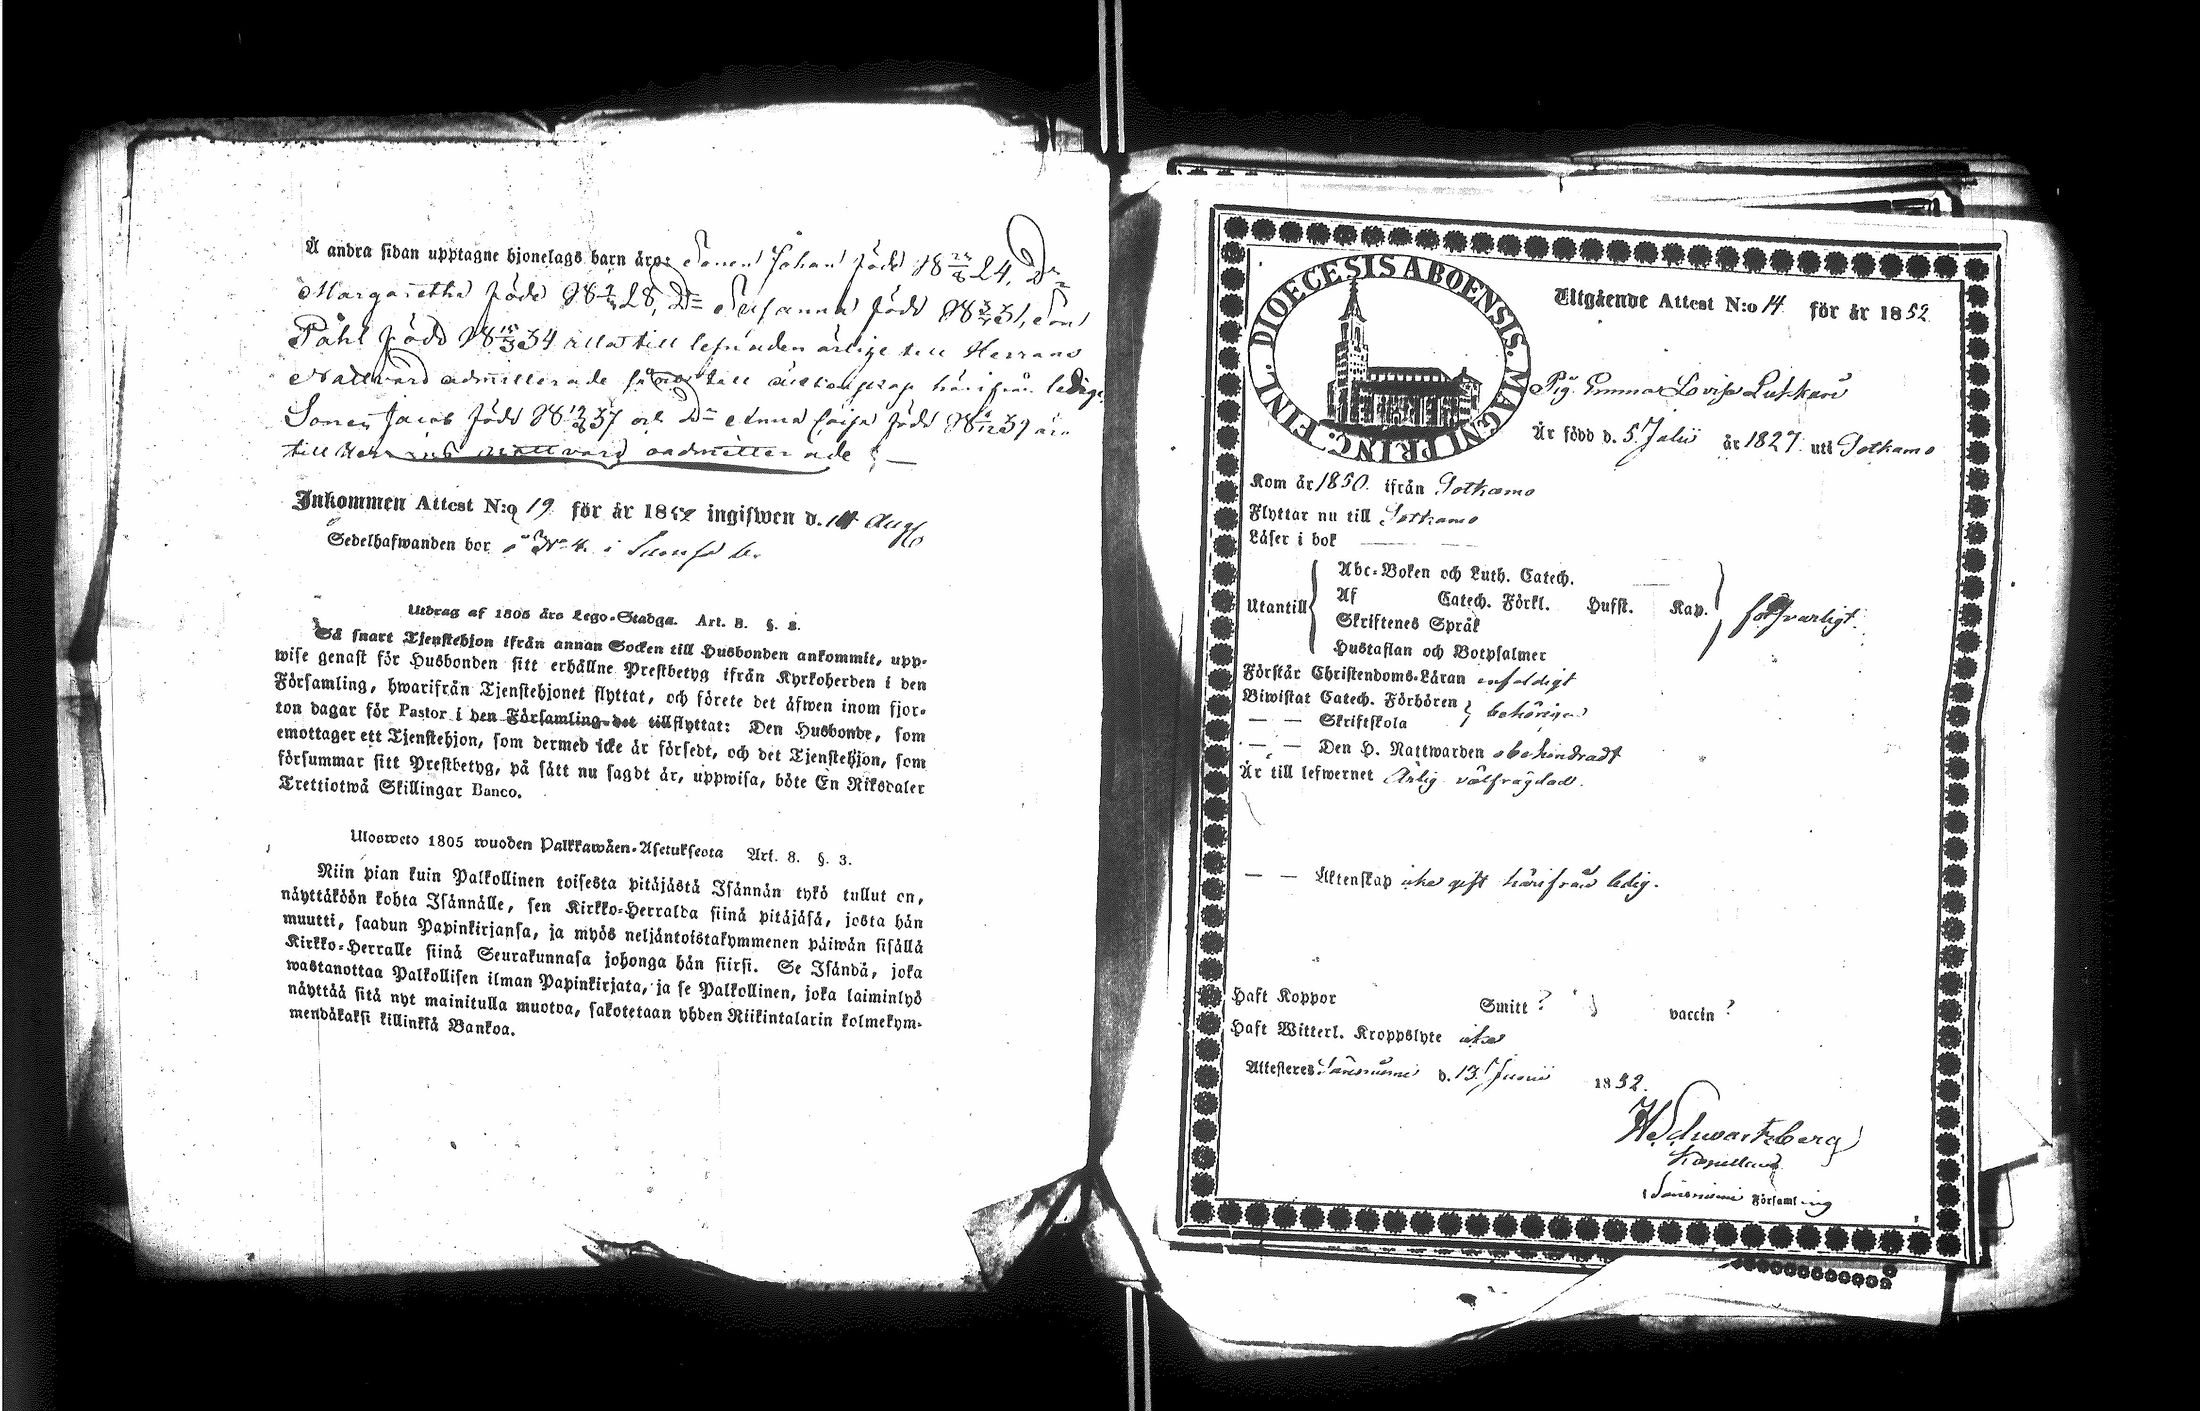 Å andra sidan upptagne hjonelags barn äro: Sonen Johan född 18 24, Dr
Margaretha född 18 28, Dr Susanna född 18 31, Son
Påhl född 18 34 alla till lefnaden ärlige till Herrans
Nattvard admitterade samt till äktenskap härifrån lediga
Sonen Jacob född 18 37 och Dr Anna Caisa född 18 39 äro
till Herrans Nattvard oadmitterade
Inkommen Attest N:o 19 för år 1852 ingifwen d. 14 Aug
Sedelhafwanden bor å N:o 4 i
Utdrag af 1805 års Lego-Stadga. Art. 8. §. 3.
Så snart Tjenstehjon ifrån annan Socken till Husbonden ankommit, upp-
wise genast för Husbonden sitt erhållne Prestbetyg ifrån Kyrkoherden i den
Församling, hwarifrån Tjenstehjonet flyttat, och förete det äfwen inom fjor-
ton dagar för Pastor i den Församling det tillflyttat: Den Husbonde, som
emottager ett Tjenstehjon, som dermed icke är försedt, och det Tjenstehjon, som
försummar sitt Prestbetyg, på sätt nu sagdt är, uppwisa, böte En Riksdaler
Trettiotwå Skillingar Banco.
Ulosweto 1805 wuoden Palkkawäen-Asetuksesta Art. 8. §. 3.
Niin pian kuin Palkollinen toisesta pitäjästä Isännän tykö tullut on,
näyttäköön kohta Isännälle, sen Kirkko-Herralda siinä pitäjäsä, josta hän
muutti, saadun Papinkirjansa, ja myös neljäntoistakymmenen päiwän sisällä
Kirkko-Herralle siinä Seurakunnasa johonga hän siirsi. Se Isändä, joka
wastanottaa Palkollisen ilman Papinkirjata, ja se Palkollinen, joka laiminlyö
näyttää sitä nyt mainitulla muotoa, sakotetaan yhden Riikintalarin kolmekym-
mendäkaksi killinkiä Bankoa.
DIOECESIS ABOENSIS. MAGNI PRINC. FINL.
Utgående Attest N:o 14 för år 1852
Pig. Emma Lovisa
Är född d. 5 Julii år 1827 uti Sotkamo
Kom år 1850 ifrån Sotkamo
Flyttar nu till Sotkamo
Läser i bok
Utantill
Abc-Boken och Luth. Catech.
Af Catech. Förkl. Husst. Kap.
Skriftenes Språk
Hustaflan och Botpsalmer
försvarligt.
Förstår Christendoms-Läran enfaldigt
Biwistat Catech. Förhören
— — Skriftskola
behörigen
— — Den H. Nattwarden obehindradt
Är till lefwernet Ärlig välfrägdad.
— — Äktenskap icke gift härifrån ledig.
Haft Koppor Smitt ? vaccin ?
Haft Witterl. Kroppslyte icke
Attesteres Säresniemi d. 13 Junii 1852.
H Schwartzberg
Kapellan
Säresniemi Församling